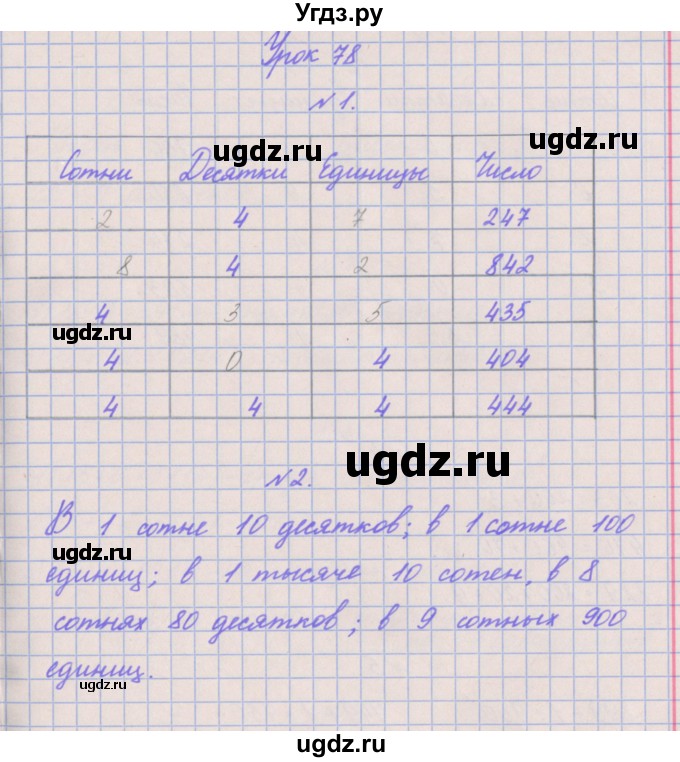 Угдз.ру
Урок 78
№ 1.
ugdz.ru
Сотни Десятки Единицы Число
ugdz.ru
2 4 7 247
8 4 2 842
4 3 5 435
ugdz.ru
4 0 4 404
4 4 4 444
ugdz.ru
№ 2.
В 1 сотне 10 десятков; в 1 сотне 100
ugdz.ru
единиц; в 1 тысяче 10 сотен, в 8
сотнях 80 десятков; в 9 сотных 900
ugdz.ru
единиц.
ugdz.ru
ugdz.ru